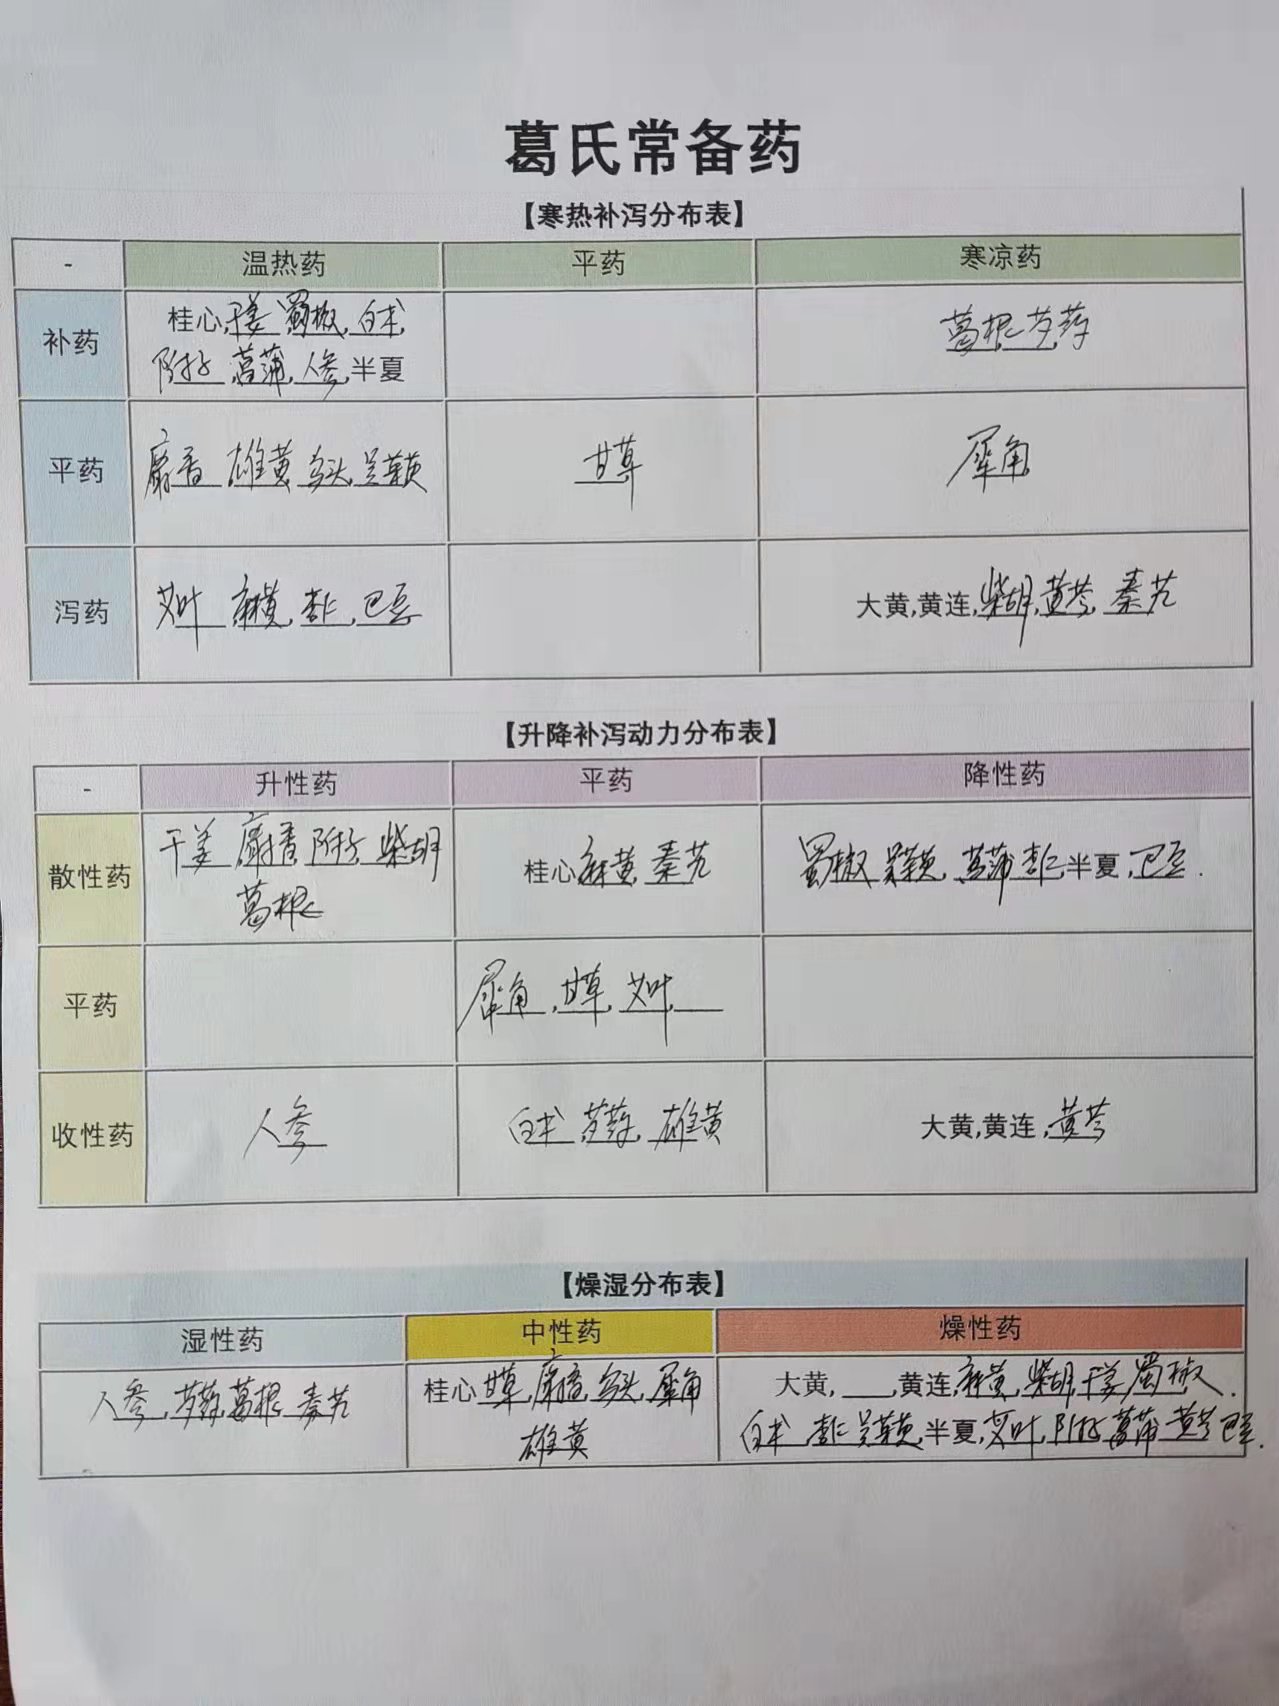 葛氏常备药
【寒热补泻分布表】
- 温热药 平药 寒凉药
补药 桂心,干姜 蜀椒,白术, 葛根 芍药
附子 菖蒲,人参,半夏
平药 麝香 雄黄 乌头,吴茱萸 甘草 犀角
泻药 艾叶 麻黄,杏仁,巴豆 大黄,黄连,柴胡,黄芩,秦艽
【升降补泻动力分布表】
- 升性药 平药 降性药
散性药 干姜 麝香 附子 柴胡 桂心,麻黄,秦艽 蜀椒 吴茱萸,菖蒲 杏仁,半夏,巴豆.
葛根
平药 犀角,甘草,艾叶,___
收性药 人参 白术 芍药,雄黄 大黄,黄连,黄芩
【燥湿分布表】
湿性药 中性药 燥性药
人参,芍药,葛根 秦艽 桂心,甘草,麝香,乌头,犀角 大黄,___,黄连,麻黄,柴胡,干姜 蜀椒.
雄黄 白术 杏仁 吴茱萸,半夏,艾叶,附子 菖蒲 黄芩 巴豆.